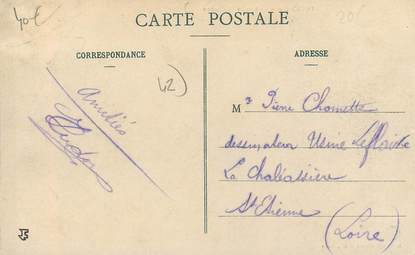 40€
CARTE POSTALE
20
CORRESPONDANCE
ADRESSE
42)
Amitiés
M r Pierre Chomette
dessinateur Usine Leflaive
La Chaléassière
St Etienne
(Loire)